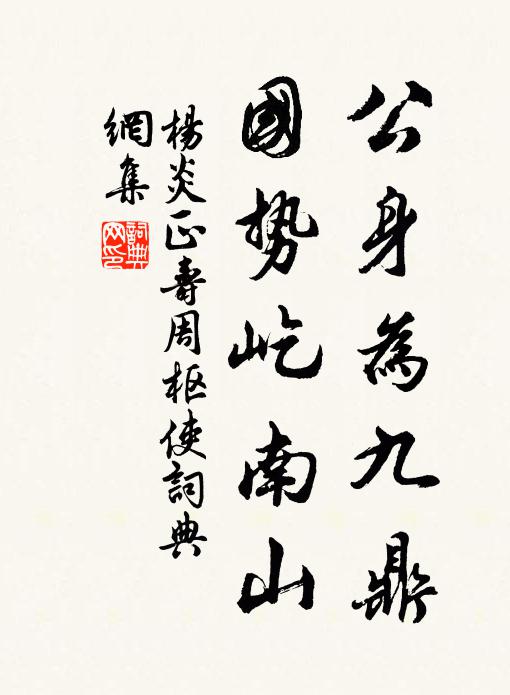 公身為九鼎
國势屹南山
楊炎正壽周枢使詞典
網集
詞典网印